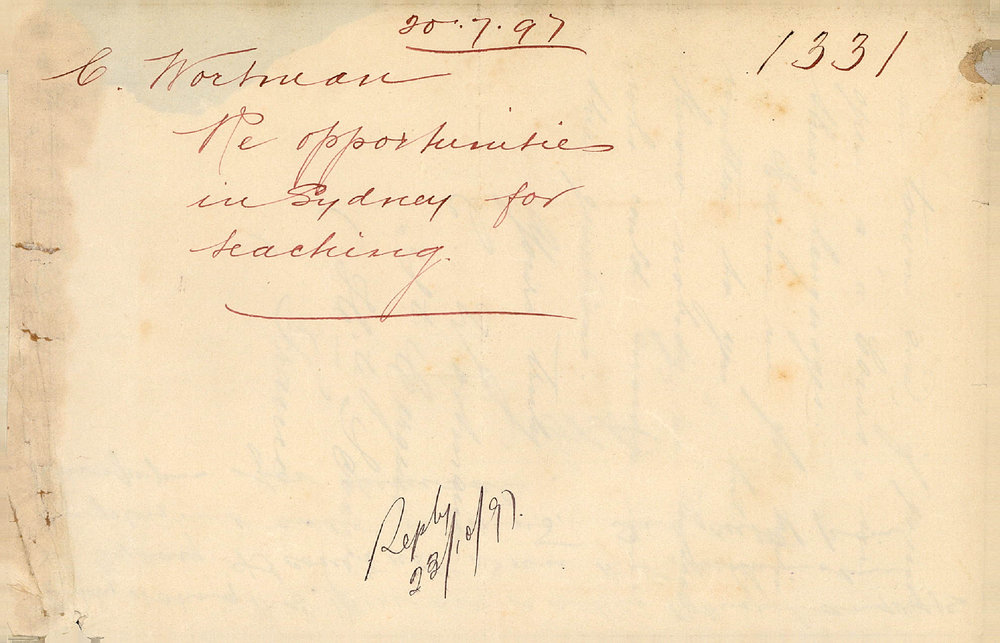 20.7.97
1331
C. Wortman
Re opportunities
in Sydney for
teaching.
Reply
23/10/97.